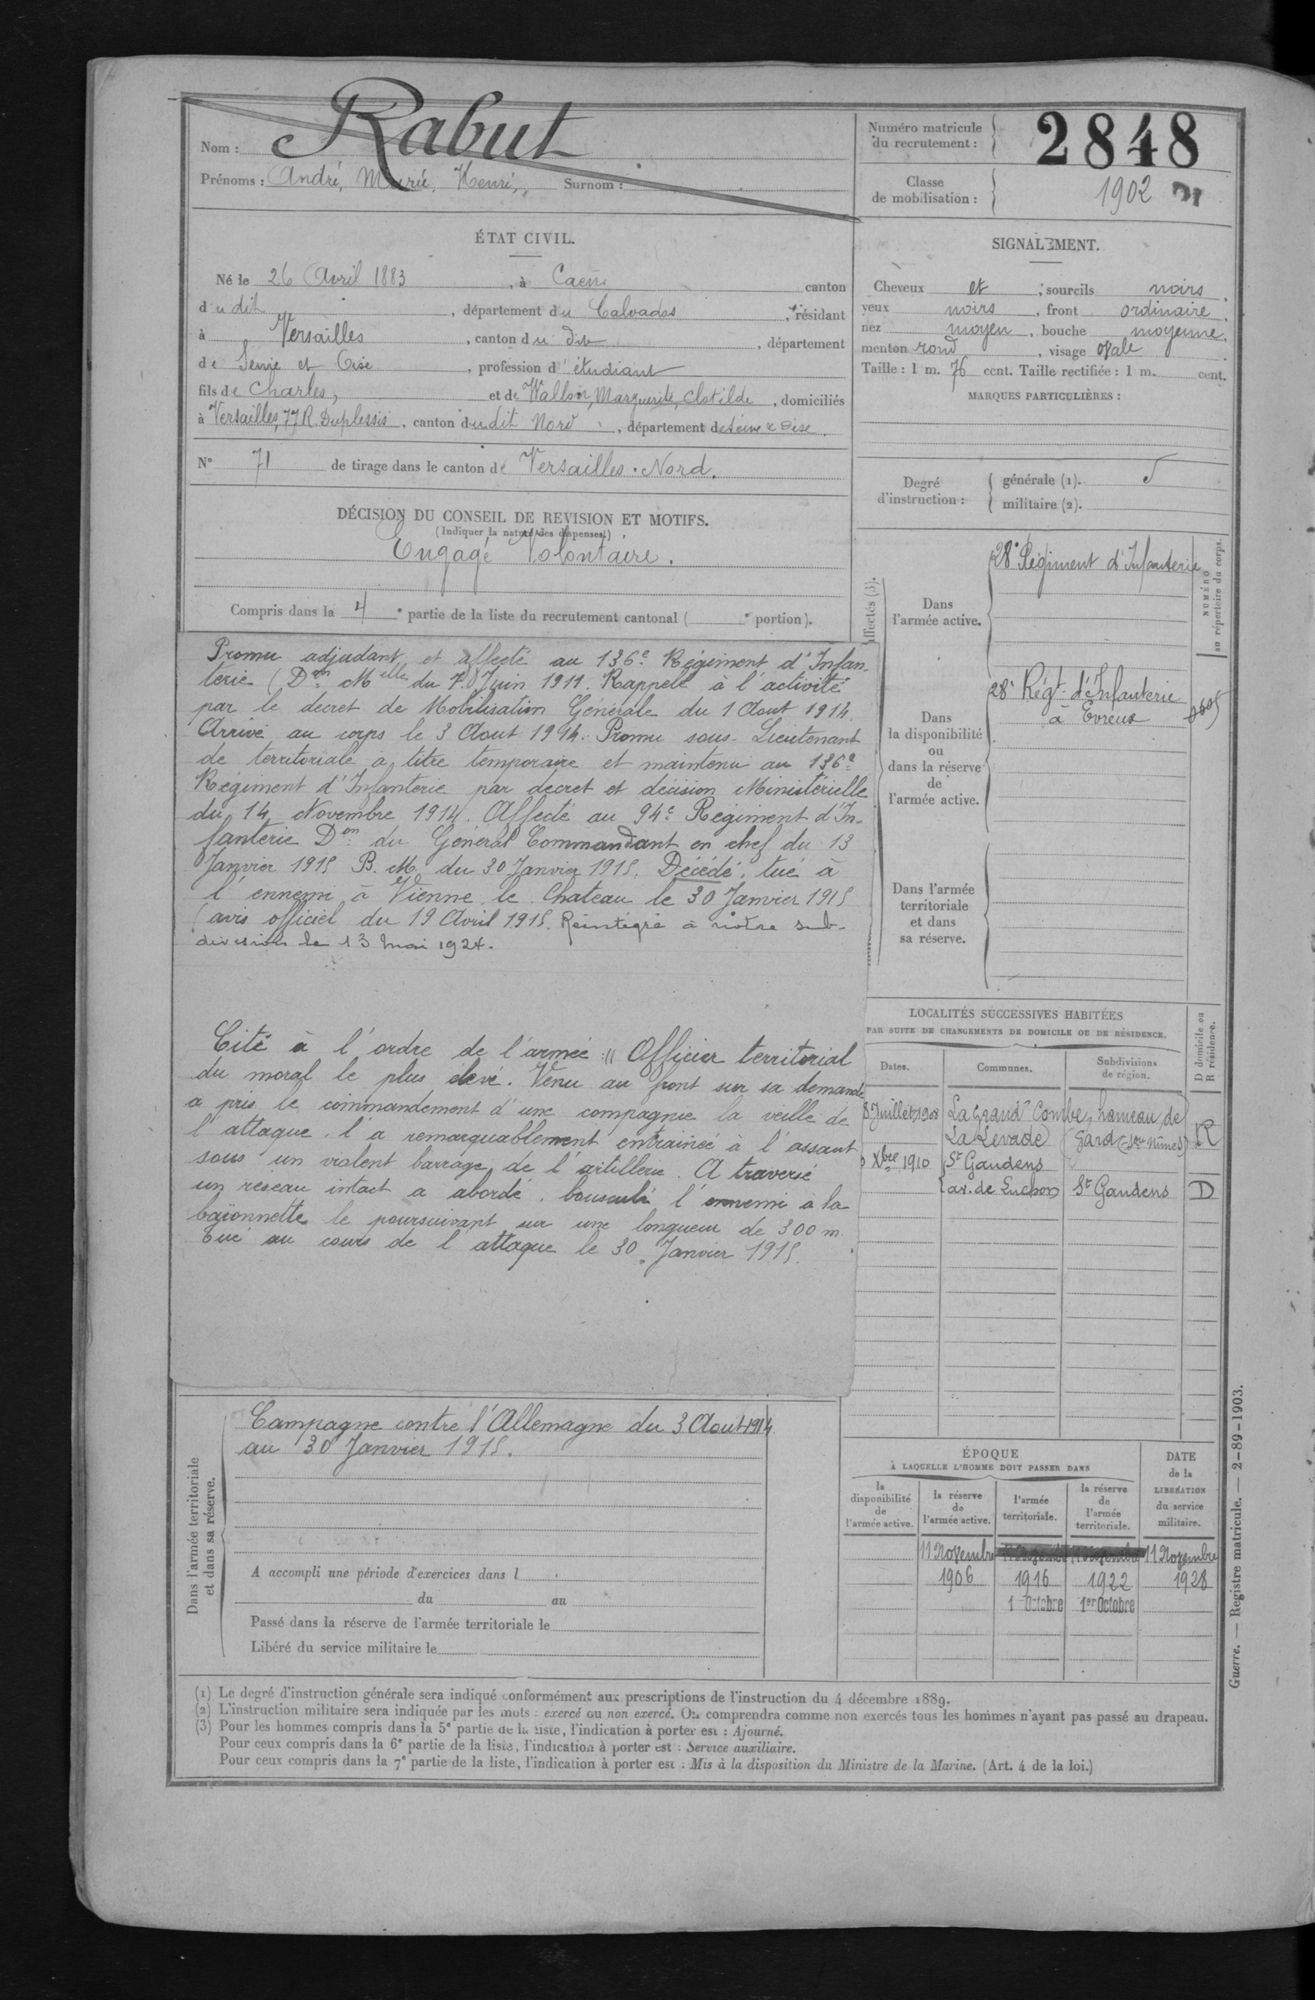 Nom : Rabut
Prénoms : André, Marie, Henri, Surnom :
Numéro matricule du recrutement : 2848
Classe de mobilisation : 1902
ÉTAT CIVIL.
Né le 26 Avril 1883, à Caen canton
dudit, département du Calvados, résidant
à Versailles, canton du dit, département
de Seine et Oise, profession d'étudiant
fils de Charles, et de Wallon, Marguerite, Clotilde, domiciliés
à Versailles, 77 R. Duplessis, canton dudit Nord, département de Seine & Oise.
N° 71 de tirage dans le canton de Versailles-Nord.
SIGNALEMENT.
Cheveux et ; sourcils noirs.
yeux noirs, front ordinaire.
nez moyen, bouche moyenne.
menton rond, visage ovale
Taille : 1 m. 76 cent. Taille rectifiée : 1 m. cent.
MARQUES PARTICULIÈRES :
Degré d'instruction : générale (1). 5
militaire (2).
DÉCISION DU CONSEIL DE REVISION ET MOTIFS.
(Indiquer la nature des dispenses.)
Engagé Volontaire.
Compris dans la 4e partie de la liste du recrutement cantonal ( e portion).
Promu adjudant et affecté au 136e Régiment d'Infan-
terie (Don Mlle du 7 Juin 1911. Rappelé à l'activité
par le décret de Mobilisation Générale du 1 Aout 1914.
Arrivé au corps le 3 Aout 1914. Promu sous-Lieutenant
de territoriale à titre temporaire et maintenu au 136e
Régiment d'Infanterie par décret et décision Ministérielle
du 14 Novembre 1914. Affecté au 94e Régiment d'In-
fanterie Don du Général Commandant en chef du 13
Janvier 1915 B. M. du 30 Janvier 1915. Décédé, tué à
l'ennemi à Vienne le Chateau le 30 Janvier 1915
(avis officiel du 19 Avril 1915. Réintégré à notre sub-
division le 13 mai 1924.
Cité à l'ordre de l'armée : " Officier territorial
du moral le plus élevé. Venu au front sur sa demande
a pris le commandement d'une compagnie la veille de
l'attaque, l'a remarquablement entrainée à l'assaut
sous un violent barrage de l'artillerie. A traversé
un réseau intact a abordé, bousculé l'ennemi à la
baïonnette le poursuivant sur une longueur de 300 m.
Tué au cours de l'attaque le 30 Janvier 1915.
affectés (3).
Dans l'armée active.
28e Régiment d'Infanterie
NUMÉRO au répertoire du corps.
Dans la disponibilité ou dans la réserve de l'armée active.
28e Régt d'Infanterie
à Evreux
Dans l'armée territoriale et dans sa réserve.
LOCALITÉS SUCCESSIVES HABITÉES
PAR SUITE DE CHANGEMENTS DE DOMICILE OU DE RÉSIDENCE.
D domicile ou R résidence.
Dates. Communes. Subdivisions de région.
8 Juillet 1908 La Grand'Combe, hameau de
La Levade (Gard) Nîmes R
Xbre 1910 St Gaudens
(av. de Luchon) St Gaudens D
Dans l'armée territoriale et dans sa réserve.
Campagne contre l'Allemagne du 3 Aout 1914
au 30 Janvier 1915.
A accompli une période d'exercices dans l
du au
Passé dans la réserve de l'armée territoriale le
Libéré du service militaire le
ÉPOQUE
À LAQUELLE L'HOMME DOIT PASSER DANS
DATE de la LIBÉRATION du service militaire.
la disponibilité de l'armée active. la réserve de l'armée active. l'armée territoriale. la réserve de l'armée territoriale.
11 Novembre 11 Novembre 11 Novembre 11 Novembre
1906 1916 1922 1928
1 Octobre 1er Octobre
(1) Le degré d'instruction générale sera indiqué conformément aux prescriptions de l'instruction du 4 décembre 1889.
(2) L'instruction militaire sera indiquée par les mots : exercé ou non exercé. On comprendra comme non exercés tous les hommes n'ayant pas passé au drapeau.
(3) Pour les hommes compris dans la 5e partie de la liste, l'indication à porter est : Ajourné.
Pour ceux compris dans la 6e partie de la liste, l'indication à porter est : Service auxiliaire.
Pour ceux compris dans la 7e partie de la liste, l'indication à porter est : Mis à la disposition du Ministre de la Marine. (Art. 4 de la loi.)
Guerre. — Registre matricule. — 2-89-1903.